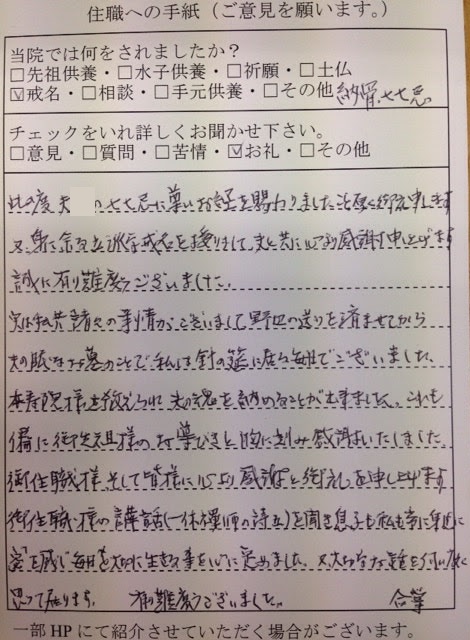 住職への手紙（ご意見を願います。）
当院では何をされましたか？
□先祖供養・□水子供養・□祈願・□土仏
☑戒名・□相談・□手元供養・□その他 納骨、七七忌
チェックをいれ詳しくお聞かせ下さい。
□意見・□質問・□苦情・☑お礼・□その他
此の度夫 の七七忌に尊いお経を賜わりましたこと厚く御礼申します
又、身に余る立派な戒名を授りまして、夫と共に心より感謝申し上げます
誠に有り難度うございました。
実は私共諸々の事情がございまして野辺の送りを済ませてから
夫の眠るお墓のことで私は針の筵に居る毎日でございました。
本寿院様を教えられ 夫の魂を納めることが出来ました。これも
偏に御先祖様のお導びきと胸に刻み感謝いたしました。
御住職様 そして皆様に心より感謝と御礼を申し上げます
御住職様の講話(一休禅師の詩文)を聞き息子も私も
を感じ毎日を大切に生きる事を心に決めました。又大切なお話を伺い度く
思って居ります。 有難度うございました。 合掌
一部HPにて紹介させていただく場合がございます。